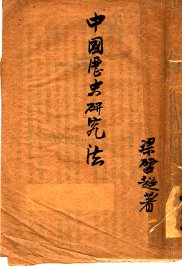 中國歷史研究法
梁啓超著